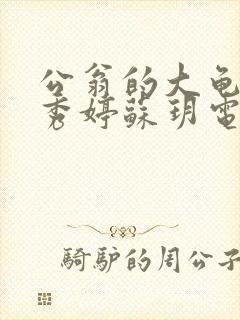 公翁的大龟
秀婷蘇玥電
騎驴的周公子